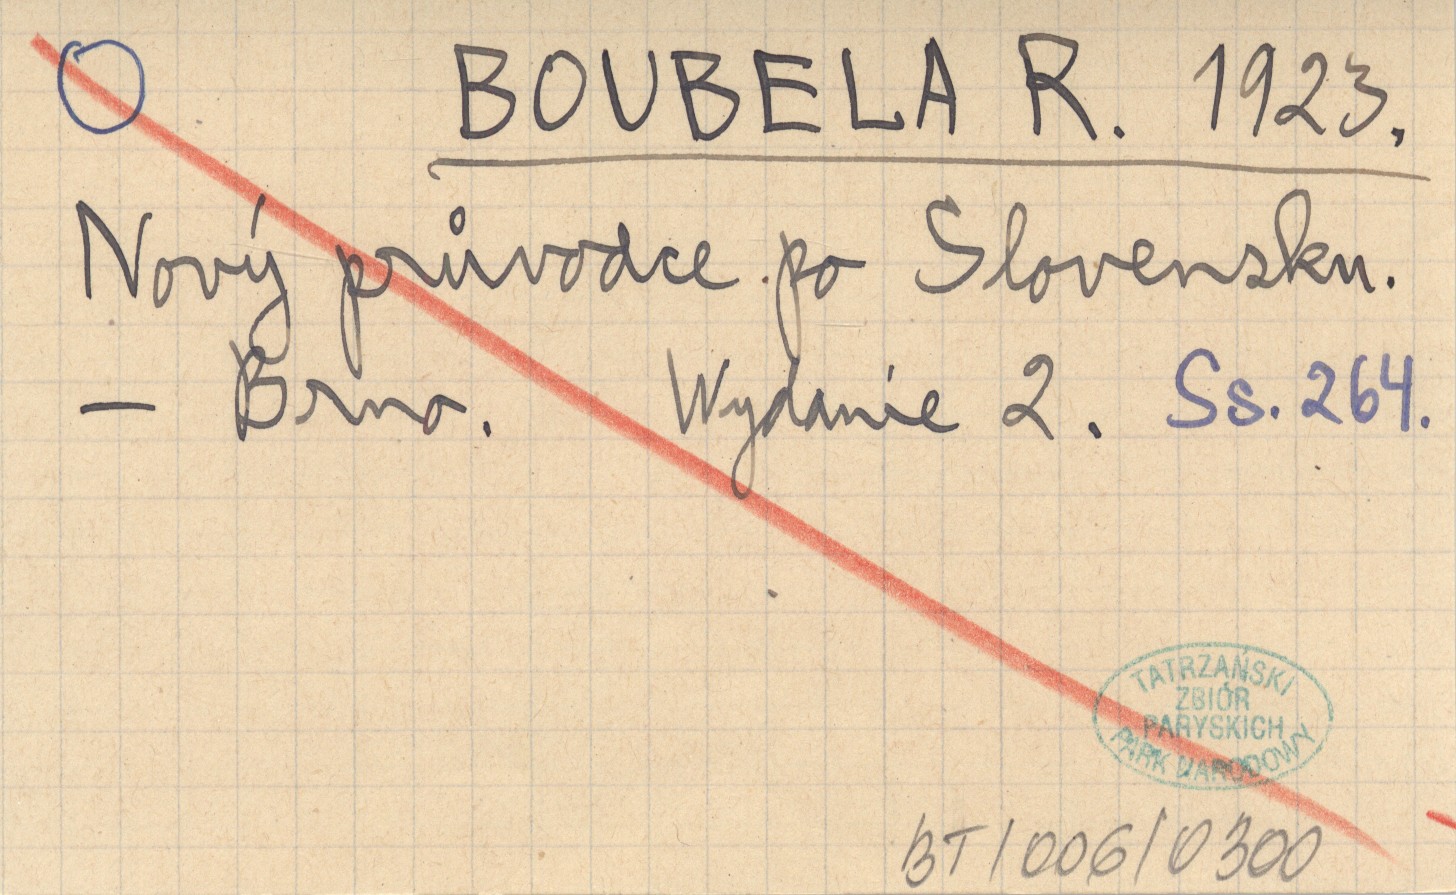 BOUBELA R. 1923.
Nový průvodce po Slovensku.
— Brno. Wydanie 2. Ss. 264.
TATRZAŃSKI
ZBIÓR
PARYSKICH
PARK NARODOWY
BT/006/0300